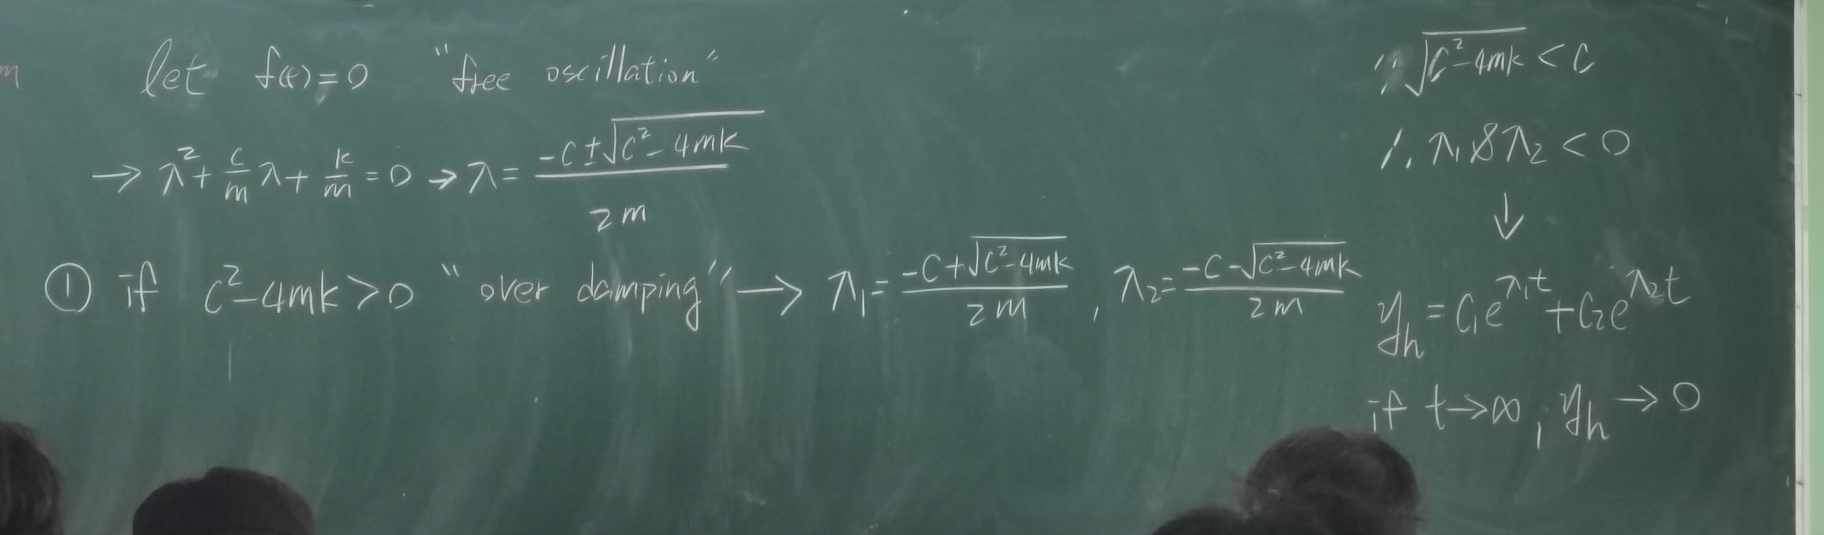 m
let f(t)=0 "free oscillation"
→ λ²+ c/m λ+ k/m =0 → λ= (-c±√(c²-4mk))/2m
① if c²-4mk>0 "over damping" → λ₁= (-c+√(c²-4mk))/2m , λ₂= (-c-√(c²-4mk))/2m
∵ √(c²-4mk) < c
∴ λ₁&λ₂ < 0
↓
y_h = c₁e^(λ₁t) + c₂e^(λ₂t)
if t→∞, y_h → 0